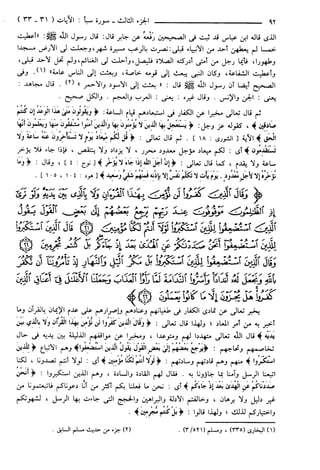 ٩٢ الجزء الثالث - سورة سبأ : الآيات ( ٣١ - ٣٣ )
الذي قاله ابن عباس قد ثبت في الصحيحين رفعه عن جابر قال: قال رسول الله ﷺ: «أعطيت
خمسا لم يعطهن أحد من الأنبياء قبلي: نصرت بالرعب مسيرة شهر، وجعلت لي الأرض مسجدا
وطهورا، فأيما رجل من أمتي أدركته الصلاة فليصل، وأحلت لي الغنائم، ولم تحل لأحد قبلي،
وأعطيت الشفاعة، وكان النبي يبعث إلى قومه خاصة، وبعثت إلى الناس عامة» (١). وفي
الصحيح أيضا أن رسول الله ﷺ قال: «بعثت إلى الأسود والأحمر» (٢). قال مجاهد :
يعني: الجن والإنس. وقال غيره: يعني : العرب والعجم. والكل صحيح .
ثم قال تعالى مخبرا عن الكفار في استبعادهم قيام الساعة: ﴿ وَيَقُولُونَ مَتَىٰ هَٰذَا الْوَعْدُ إِن كُنتُمْ
صَادِقِينَ ﴾، كقوله عز وجل: ﴿ يَسْتَعْجِلُ بِهَا الَّذِينَ لَا يُؤْمِنُونَ بِهَا وَالَّذِينَ آمَنُوا مُشْفِقُونَ مِنْهَا وَيَعْلَمُونَ أَنَّهَا
الْحَقُّ ﴾ الآية [ الشورى : ١٨ ]. ثم قال تعالى : ﴿ قُل لَّكُم مِّيعَادُ يَوْمٍ لَّا تَسْتَأْخِرُونَ عَنْهُ سَاعَةً وَلَا
تَسْتَقْدِمُونَ ﴾ أي : لكم ميعاد مؤجل معدود محرر ، لا يزداد ولا ينتقص ، فإذا جاء فلا يؤخر
ساعة ولا يقدم ، كما قال تعالى : ﴿ إِنَّ أَجَلَ اللَّهِ إِذَا جَاءَ لَا يُؤَخَّرُ ﴾ [ نوح : ٤ ] ، وقال : ﴿ وَمَا
نُؤَخِّرُهُ إِلَّا لِأَجَلٍ مَّعْدُودٍ . يَوْمَ يَأْتِ لَا تَكَلَّمُ نَفْسٌ إِلَّا بِإِذْنِهِ فَمِنْهُمْ شَقِيٌّ وَسَعِيدٌ ﴾ [ هود : ١٠٤ - ١٠٥ ] .
وَقَالَ الَّذِينَ كَفَرُوا لَن نُّؤْمِنَ بِهَٰذَا الْقُرْآنِ وَلَا بِالَّذِي بَيْنَ يَدَيْهِ وَلَوْ تَرَىٰ
إِذِ الظَّالِمُونَ مَوْقُوفُونَ عِندَ رَبِّهِمْ يَرْجِعُ بَعْضُهُمْ إِلَىٰ بَعْضٍ الْقَوْلَ يَقُولُ
الَّذِينَ اسْتُضْعِفُوا لِلَّذِينَ اسْتَكْبَرُوا لَوْلَا أَنتُمْ لَكُنَّا مُؤْمِنِينَ ﴿٣١﴾ قَالَ الَّذِينَ
اسْتَكْبَرُوا لِلَّذِينَ اسْتُضْعِفُوا أَنَحْنُ صَدَدْنَاكُمْ عَنِ الْهُدَىٰ بَعْدَ إِذْ جَاءَكُم بَلْ كُنتُم مُّجْرِمِينَ ﴿٣٢﴾ وَقَالَ
الَّذِينَ اسْتُضْعِفُوا لِلَّذِينَ اسْتَكْبَرُوا بَلْ مَكْرُ اللَّيْلِ وَالنَّهَارِ إِذْ تَأْمُرُونَنَا أَن نَّكْفُرَ
بِاللَّهِ وَنَجْعَلَ لَهُ أَندَادًا وَأَسَرُّوا النَّدَامَةَ لَمَّا رَأَوُا الْعَذَابَ وَجَعَلْنَا الْأَغْلَالَ فِي أَعْنَاقِ الَّذِينَ
كَفَرُوا هَلْ يُجْزَوْنَ إِلَّا مَا كَانُوا يَعْمَلُونَ ﴿٣٣﴾
يخبر تعالى عن تمادي الكفار في طغيانهم وعنادهم وإصرارهم على عدم الإيمان بالقرآن وما
أخبر به من أمر المعاد ؛ ولهذا قال تعالى : ﴿ وَقَالَ الَّذِينَ كَفَرُوا لَن نُّؤْمِنَ بِهَٰذَا الْقُرْآنِ وَلَا بِالَّذِي بَيْنَ
يَدَيْهِ ﴾ قال الله تعالى متهددا لهم ومتوعدا ، ومخبرا عن مواقفهم الذليلة بين يديه في حال
تخاصمهم وتحاجهم : ﴿ يَرْجِعُ بَعْضُهُمْ إِلَىٰ بَعْضٍ الْقَوْلَ يَقُولُ الَّذِينَ اسْتُضْعِفُوا ﴾ وهم الأتباع ﴿ لِلَّذِينَ
اسْتَكْبَرُوا ﴾ منهم وهم قادتهم وسادتهم : ﴿ لَوْلَا أَنتُمْ لَكُنَّا مُؤْمِنِينَ ﴾ ، أي : لولا أنتم تصدونا ، لكنا
اتبعنا الرسل وآمنا بما جاؤونا به . فقال لهم القادة والسادة ، وهم الذين استكبروا : ﴿ أَنَحْنُ
صَدَدْنَاكُمْ عَنِ الْهُدَىٰ بَعْدَ إِذْ جَاءَكُم ﴾ أي : نحن ما فعلنا بكم أكثر من أنا دعوناكم فاتبعتمونا من
غير دليل ولا برهان ، وخالفتم الأدلة والبراهين والحجج التي جاءت بها الرسل ، لشهوتكم
واختياركم لذلك ؛ ولهذا قالوا : ﴿ بَلْ كُنتُم مُّجْرِمِينَ ﴾ .
(١) البخاري (٣٣٥) ، ومسلم (٣/٥٢١) . (٢) جزء من حديث مسلم السابق .